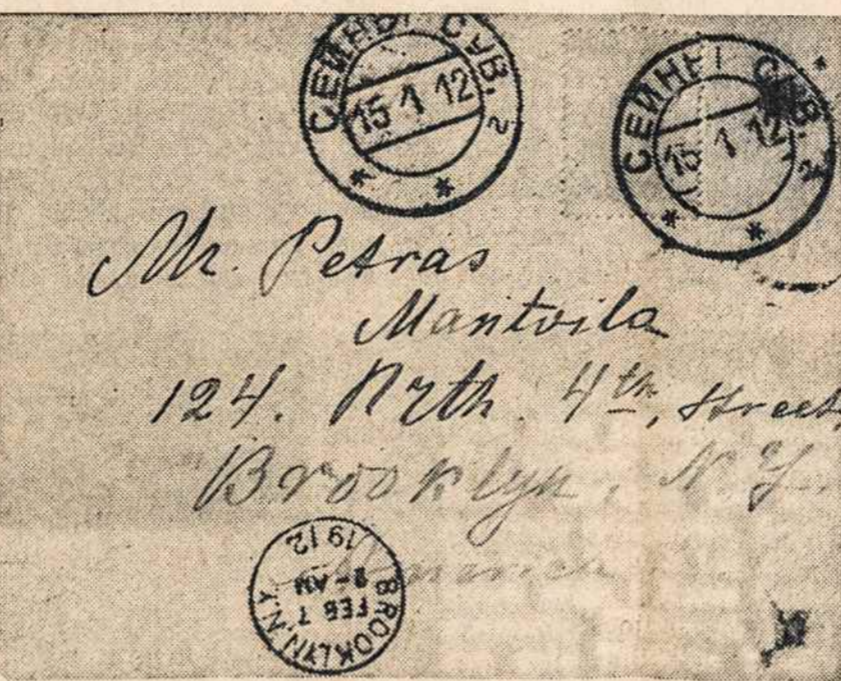 СЕЙНЫ СУВ. 2
15 1 12
СЕЙНЫ СУВ. 2
15 1 12
Mr. Petras
Mantvila
124. Nrth. 4th, Street
Brooklyn, N. Y.
America
BROOKLYN, N.Y.
FEB 7
9-AM
1912